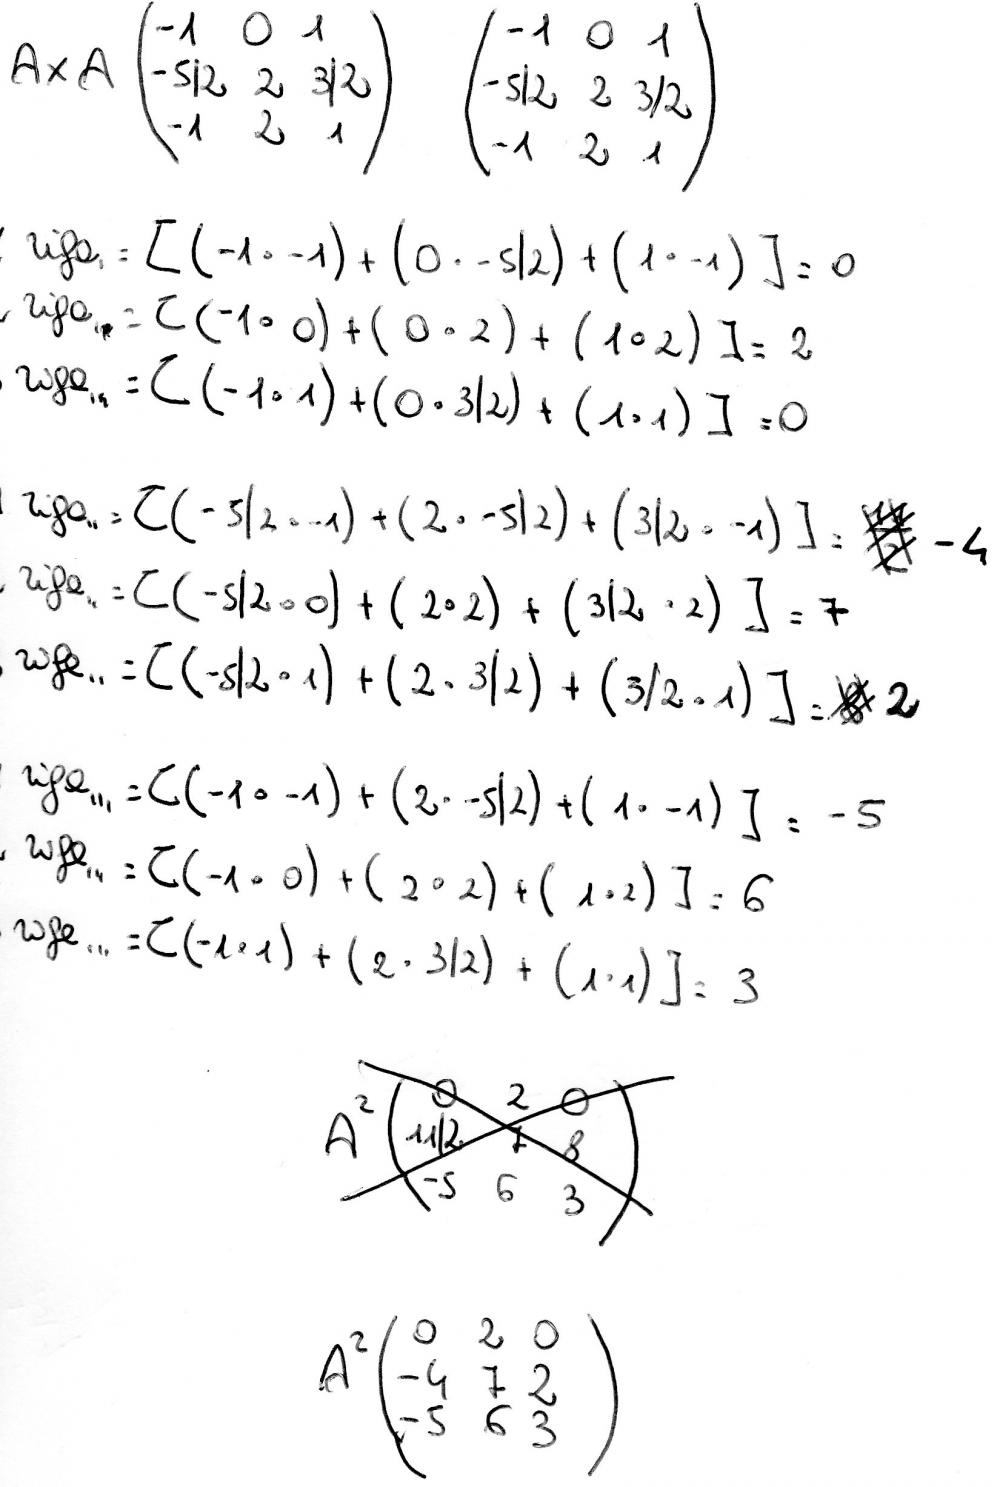 A×A (-1 0 1) (-1 0 1)
(-5/2 2 3/2) (-5/2 2 3/2)
(-1 2 1) (-1 2 1)
riga, = [(-1 · -1) + (0 · -5/2) + (1 · -1)] = 0
riga,, = [(-1 · 0) + (0 · 2) + (1 · 2)] = 2
riga,, = [(-1 · 1) + (0 · 3/2) + (1 · 1)] = 0
riga,, = [(-5/2 · -1) + (2 · -5/2) + (3/2 · -1)] = -4
riga,, = [(-5/2 · 0) + (2 · 2) + (3/2 · 2)] = 7
riga,, = [(-5/2 · 1) + (2 · 3/2) + (3/2 · 1)] = 2
riga,,, = [(-1 · -1) + (2 · -5/2) + (1 · -1)] = -5
riga,,, = [(-1 · 0) + (2 · 2) + (1 · 2)] = 6
riga,,, = [(-1 · 1) + (2 · 3/2) + (1 · 1)] = 3
A² (0 2 0)
(11/2 7 8)
(-5 6 3)
A² (0 2 0)
(-4 7 2)
(-5 6 3)